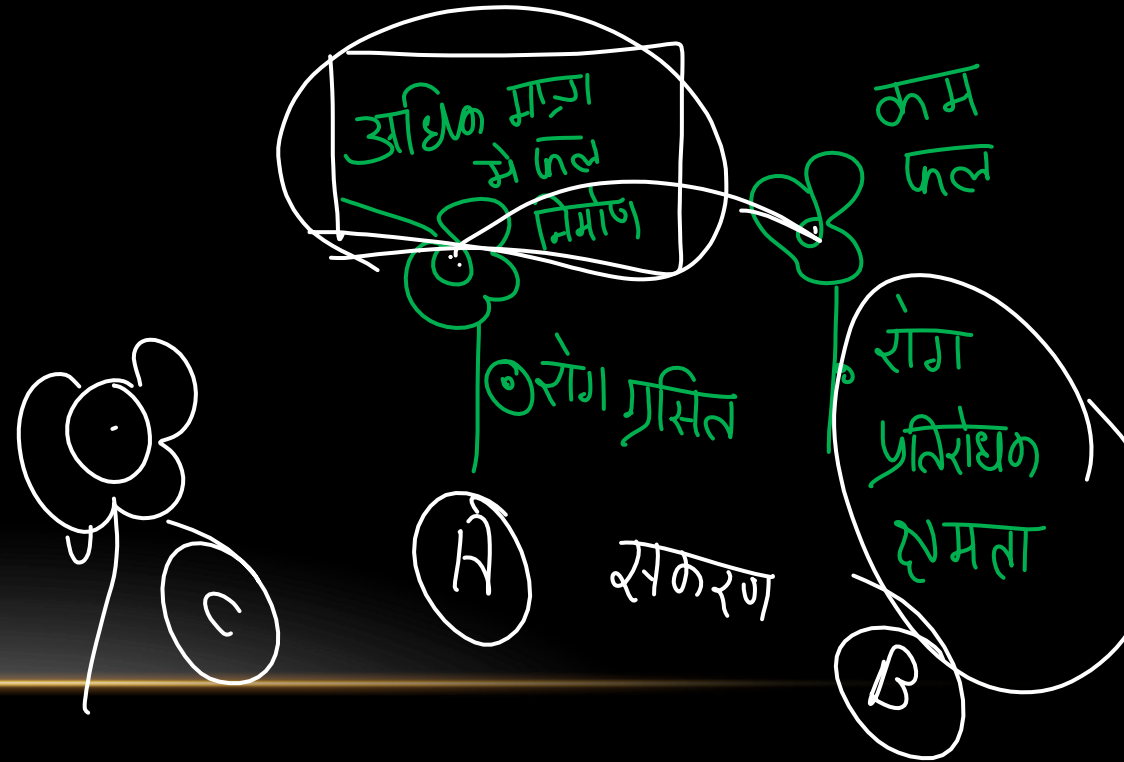 अधिक मात्रा
मे फल
निर्माण
कम
फल
रोग ग्रसित
रोग
प्रतिरोधक
क्षमता
A
संकरण
B
C